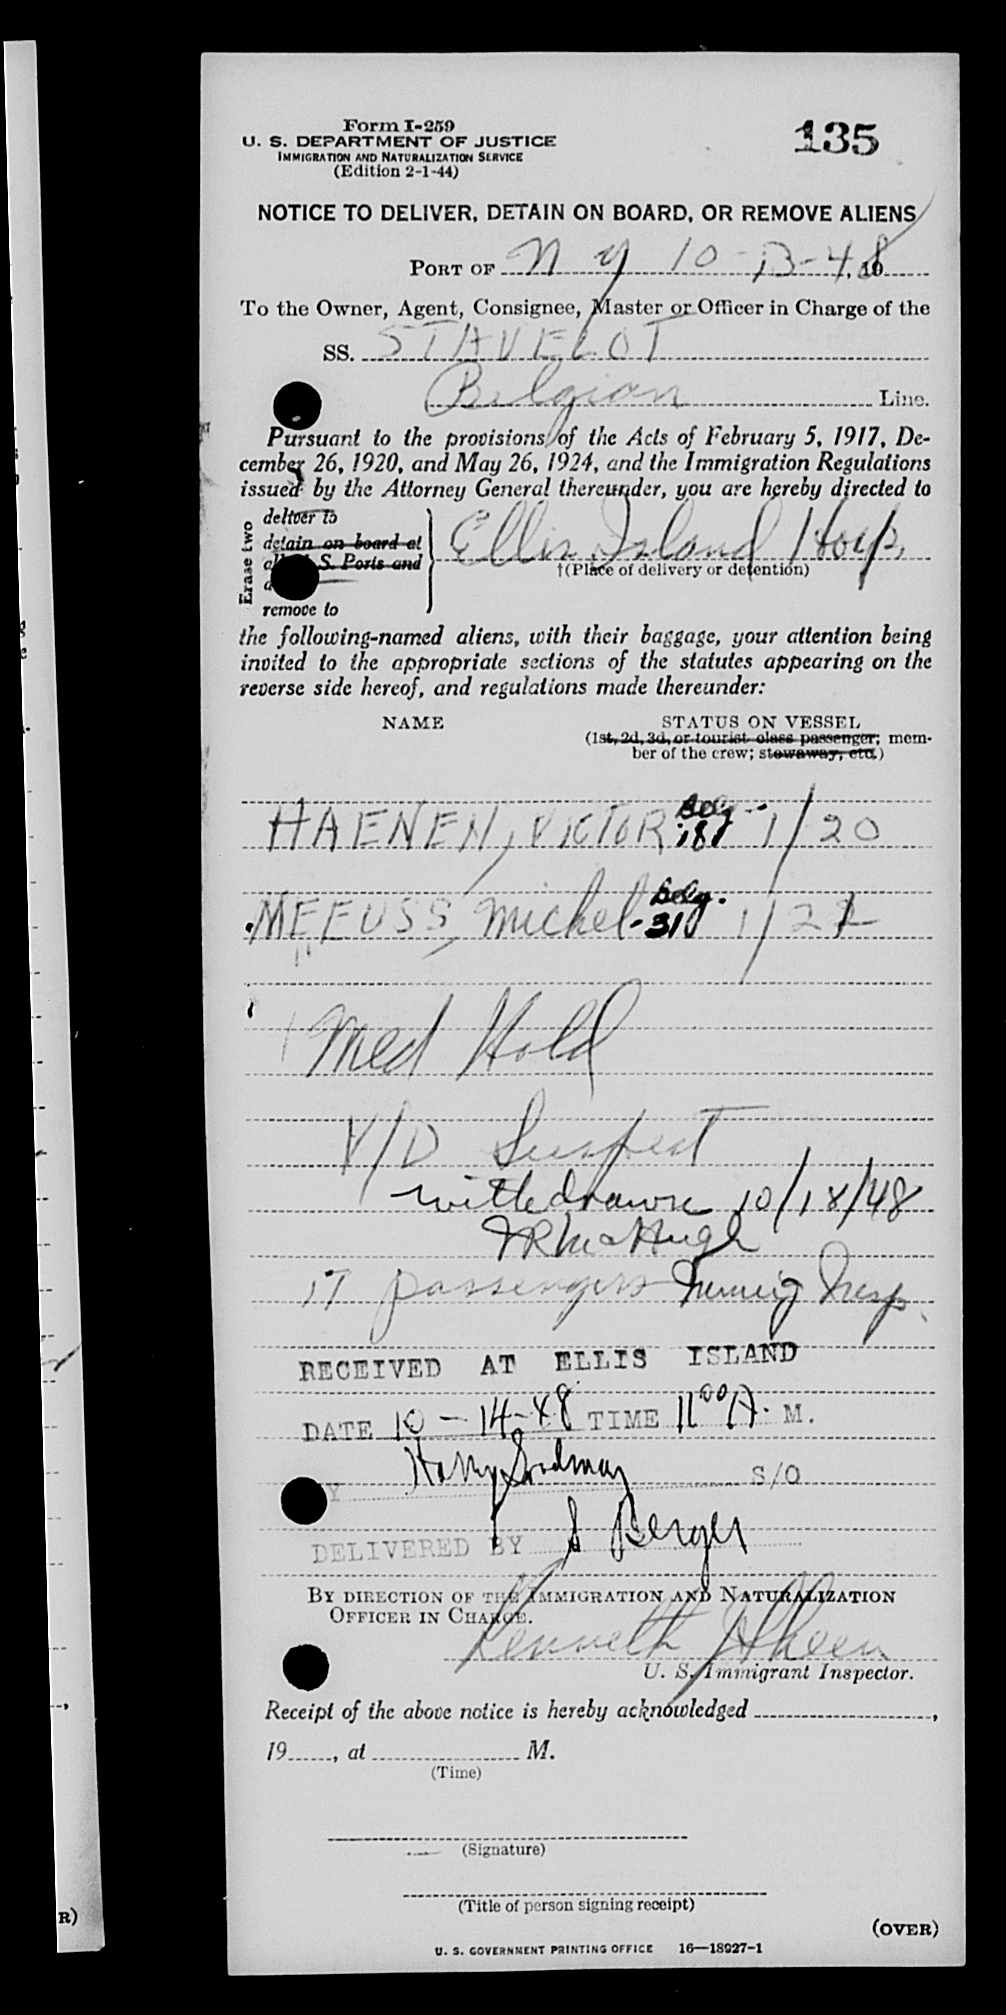 Form I-259
U. S. DEPARTMENT OF JUSTICE
IMMIGRATION AND NATURALIZATION SERVICE
(Edition 2-1-44)
135
NOTICE TO DELIVER, DETAIN ON BOARD, OR REMOVE ALIENS
PORT OF N Y 10-13-48, 19
To the Owner, Agent, Consignee, Master or Officer in Charge of the
SS. STAVELOT
Belgian Line.
Pursuant to the provisions of the Acts of February 5, 1917, De-
cember 26, 1920, and May 26, 1924, and the Immigration Regulations
issued by the Attorney General thereunder, you are hereby directed to
Erase two
deliver to
detain on board at
S. Ports and
remove to
Ellis Island Hosp.
†(Place of delivery or detention)
the following-named aliens, with their baggage, your attention being
invited to the appropriate sections of the statutes appearing on the
reverse side hereof, and regulations made thereunder:
NAME STATUS ON VESSEL
(1st, 2d, 3d, or tourist class passenger; mem-
ber of the crew; stowaway, etc.)
HAENEN, VICTOR Belg. 18 1/20
MEEUSS, Michel - Belg. 31 1/22
Med Hold
V/D Suspect
withdrawn 10/18/48
McHugh
17 passengers Immig Insp.
RECEIVED AT ELLIS ISLAND
DATE 10-14-48 TIME 11 00 A. M.
Harry S/O
DELIVERED BY S Berger
BY DIRECTION OF THE IMMIGRATION AND NATURALIZATION
OFFICER IN CHARGE.
Kenneth
U. S. Immigrant Inspector.
Receipt of the above notice is hereby acknowledged ,
19 , at M.
(Time)
(Signature)
(Title of person signing receipt)
(OVER)
U. S. GOVERNMENT PRINTING OFFICE 16—18927-1
R)